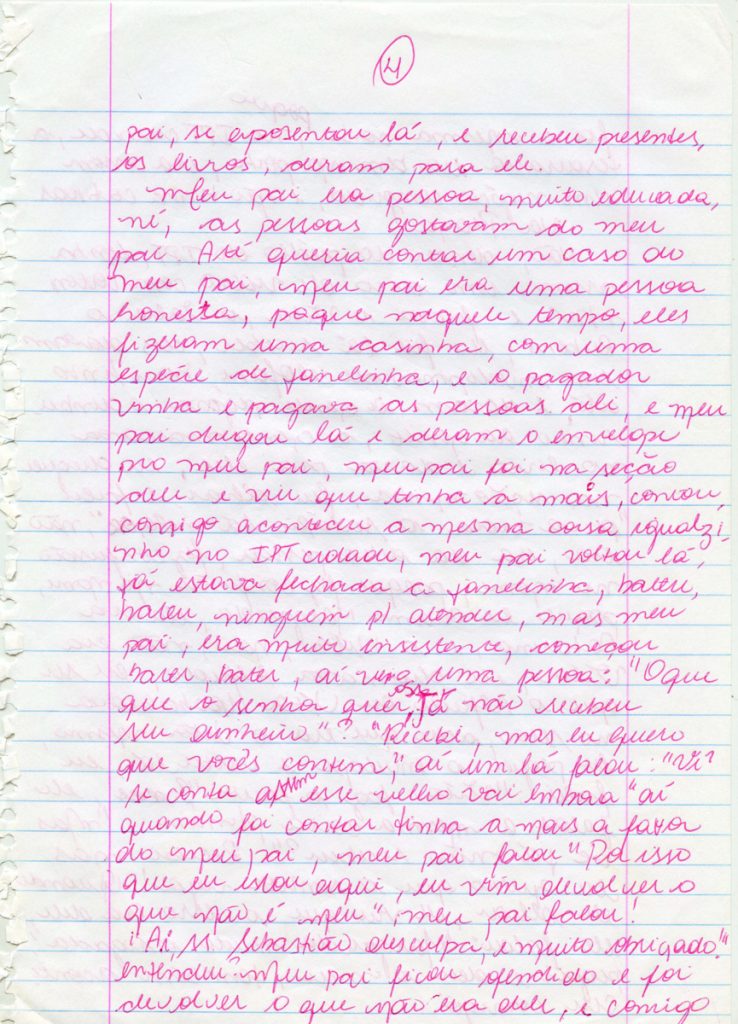 4
pai, se aposentou lá, e recebeu presentes,
os livros, deram para ele.
Meu pai era pessoa, muito educada,
né, as pessoas gostavam do meu
pai. Até queria contar um caso do
meu pai, meu pai era uma pessoa
honesta, poque naquele tempo, eles
fizeram uma casinha, com uma
espécie de janelinha, e o pagador
vinha e pagava as pessoas ali, e meu
pai chegou lá e deram o envelope
pro meu pai, meu pai foi na seção
dele e viu que tinha a mais, contou,
comigo aconteceu a mesma coisa igualzi
nho no IPT cidade, meu pai voltou lá,
já estava fechada a janelinha, bateu,
bateu, ninguém p/ atender, mas meu
pai, era muito insistente, começou
bater, bater, aí uma pessoa: "O que
que o senhor quer, já não recebeu
seu dinheiro"? "Recebi, mas eu quero
que vocês contem," aí um lá falou: "Vê
se conta assim esse velho vai embora" aí
quando foi contar tinha a mais a favor
do meu pai, meu pai falou "Por isso
que eu estou aqui, eu vim devolver o
que não é meu", meu pai falou!
"Ai, Sebastião desculpa, e muito obrigado."
entendeu? Meu pai ficou ofendido e foi
devolver o que não era dele, e comigo